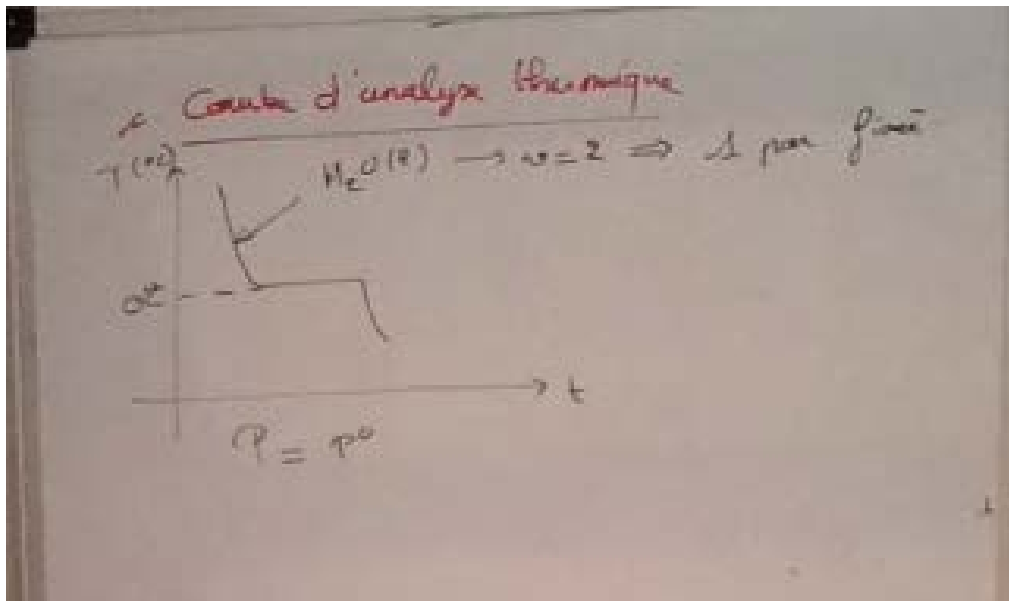 Courbe d'analyse thermique
T(°C)
H₂O(l) → v = 2 ⇒ 1 par fixé
0°C
t
P = P°